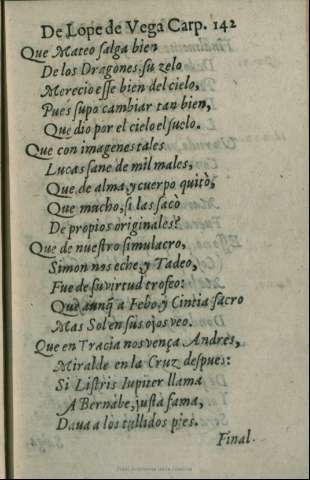 De Lope de Vega Carp. 142
Que Mateo ſalga bien
De los Dragones, ſu zelo
Merecio eſſe bien del cielo,
Pues ſupo cambiar tan bien,
Que dio por el cielo el ſuelo.
Que con imagenes tales
Lucas ſane de mil males,
Que de alma, y cuerpo quitò,
Que mucho, si las ſacò
De propios originales?
Que de nueſtro ſimulacro,
Simon nos eche, y Tadeo,
Fue de ſu virtud trofeo:
Que aunq̃ a Febo, y Cintia ſacro
Mas Sol en ſus ojos veo.
Que en Tracia nos vença Andrès,
Miralde en la Cruz deſpues:
Si Liſtris Iupiter llama
A Bernabe, juſta fama,
Daua a los tullidos pies.
Final.